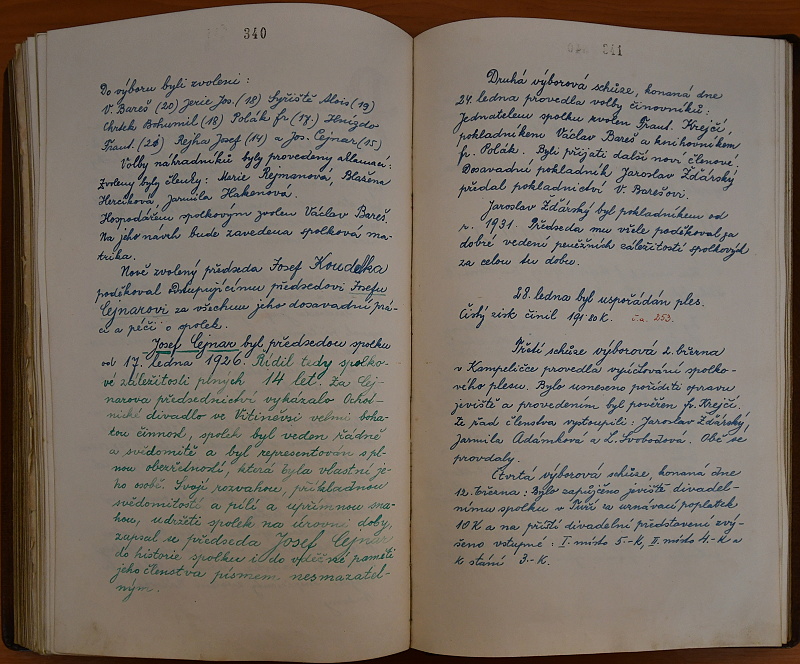 340
Do výboru byli zvoleni:
V. Bareš (20) Jerie Jos. (18) Syřiště Alois (19)
Chrtek Bohumil (18) Polák fr. (17.) Hnízdo
Fraut. (20) Rejha Josef (14) a Jos. Cejnar (15)
Volby náhradníků byly provedeny aklamací:
Zvoleny byly členky: Marie Rejmanová, Blažena
Herčíková, Jarmila Hakenová.
Hospodářem spolkovým zvolen Václav Bareš.
Na jeho návrh bude zavedena spolková ma-
trika.
Nově zvolený předseda Josef Koudelka
poděkoval odstupujícímu předsedovi Josefu
Cejnarovi za všechnu jeho dosavadní prá-
ci a péči o spolek.
Josef Cejnar byl předsedou spolku
od 17. ledna 1926. Řídil tedy spolko-
vé záležitosti plných 14 let. Za Cej-
narova předsednictví vykázalo Ochot-
nické divadlo ve Vitiněvsi velmi boha-
tou činnost, spolek byl veden řádně
a svědomitě a byl representován s pl-
nou obezředností, která byla vlastní je-
ho osobě. Svojí rozvahou, příkladnou
svědomitostí a pílí a upřímnou sna-
hou, udržeti spolek na úrovni doby,
zapsal se předseda Josef Cejnar
do historie spolku i do vděčné paměti
jeho členstva písmem nesmazatel-
ným.
341
Druhá výborová schůze, konaná dne
24. ledna provedla volby činovníků:
Jednatelem spolku zvolen Fraut. Krejčí,
pokladníkem Václav Bareš a knihovníkem
fr. Polák. Byli přijati další noví členové.
Dosavadní pokladník Jaroslav Žďárský
předal pokladnictví V. Barešovi.
Jaroslav Žďárský byl pokladníkem od
r. 1931. Předseda mu vřele poděkoval za
dobré vedení peněžních záležitostí spolkových
za celou tu dobu.
28. ledna byl uspořádán ples.
Čistý zisk činil 191·20 K. č.a. 253.
Třetí schůze výborová 2. března
v Kampeličce provedla vyúčtování spolko-
vého plesu. Bylo usneseno poříditi opravu
jeviště a provedením byl pověřen fr. Krejčí.
Ze řad členstva vystoupili: Jaroslav Žďárský,
Jarmila Adámková a L. Svobodová. Obě se
provdaly.
Čtvrtá výborová schůze, konaná dne
12. března: Bylo zapůjčeno jeviště divadel-
nímu spolku v Tuři za uznávací poplatek
10 K a na příští divadelní představení zvý-
šeno vstupné: I. místo 5.-K, II. místo 4.-K a
k stání 3.-K.